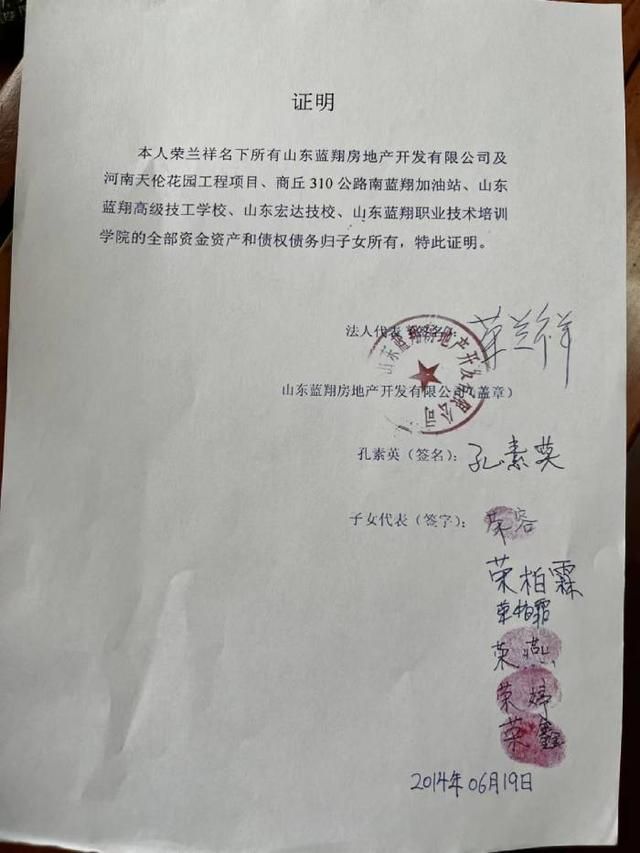 证明
本人荣兰祥名下所有山东蓝翔房地产开发有限公司及
河南天伦花园工程项目、商丘310公路南蓝翔加油站、山东
蓝翔高级技工学校、山东宏达技校、山东蓝翔职业技术培训
学院的全部资金资产和债权债务归子女所有，特此证明。
法人代表（签名）： 荣兰祥
山东蓝翔房地产开发有限公司
山东蓝翔房地产开发有限公司（盖章）
孔素英（签名）： 孔素英
子女代表（签字）： 荣容
荣柏霖
荣柏霜
荣燕
荣婷
荣鑫
2014年06月19日